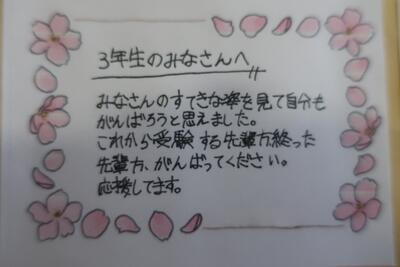 3年生のみなさんへ
みなさんのすてきな姿を見て自分も
がんばろうと思えました。
これから受験する先輩方終った
先輩方、がんばってください。
応援してます。